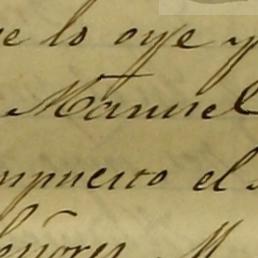 e lo oye y
Manuel
mpuesto el
señores M